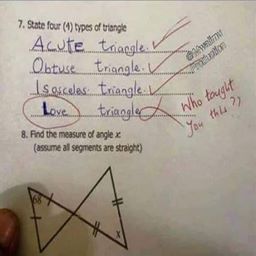 7. State four (4) types of triangle
Acute triangle.
Obtuse triangle.
Isosceles triangle.
Love triangle
Who taught
you this ??
8. Find the measure of angle x
(assume all segments are straight)
68
x